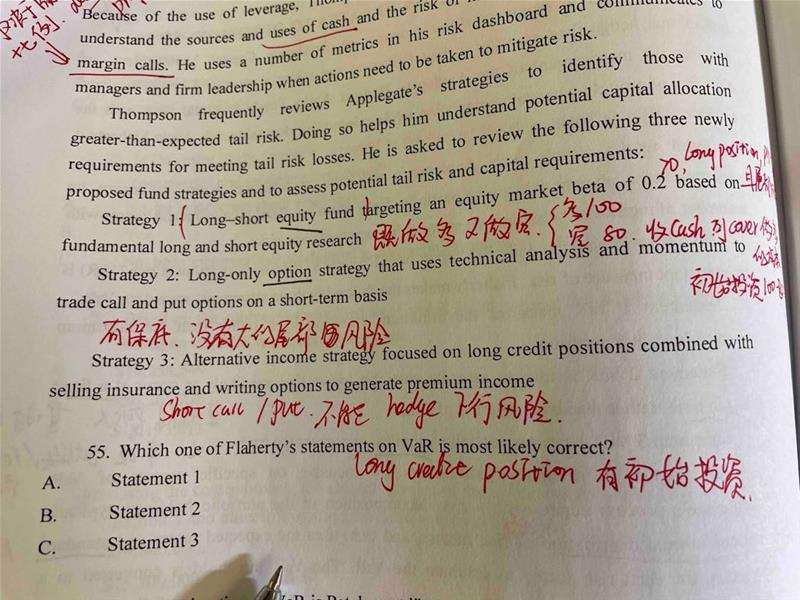 Because of the use of leverage,
understand the sources and uses of cash and the risk of
margin calls. He uses a number of metrics in his risk dashboard and communicates to
managers and firm leadership when actions need to be taken to mitigate risk.
Thompson frequently reviews Applegate's strategies to identify those with
greater-than-expected tail risk. Doing so helps him understand potential capital allocation
requirements for meeting tail risk losses. He is asked to review the following three newly
proposed fund strategies and to assess potential tail risk and capital requirements:
>0, long position,
Strategy 1: Long–short equity fund targeting an equity market beta of 0.2 based on
fundamental long and short equity research 既做多又做空. { 多100
空 80. 收cash 到cover
Strategy 2: Long-only option strategy that uses technical analysis and momentum to
初始投资100-
trade call and put options on a short-term basis
有保底. 没有大的尾部风险
Strategy 3: Alternative income strategy focused on long credit positions combined with
selling insurance and writing options to generate premium income
Short call / put. 不能 hedge 下行风险.
55. Which one of Flaherty's statements on VaR is most likely correct?
long credit position 有初始投资.
A. Statement 1
B. Statement 2
C. Statement 3